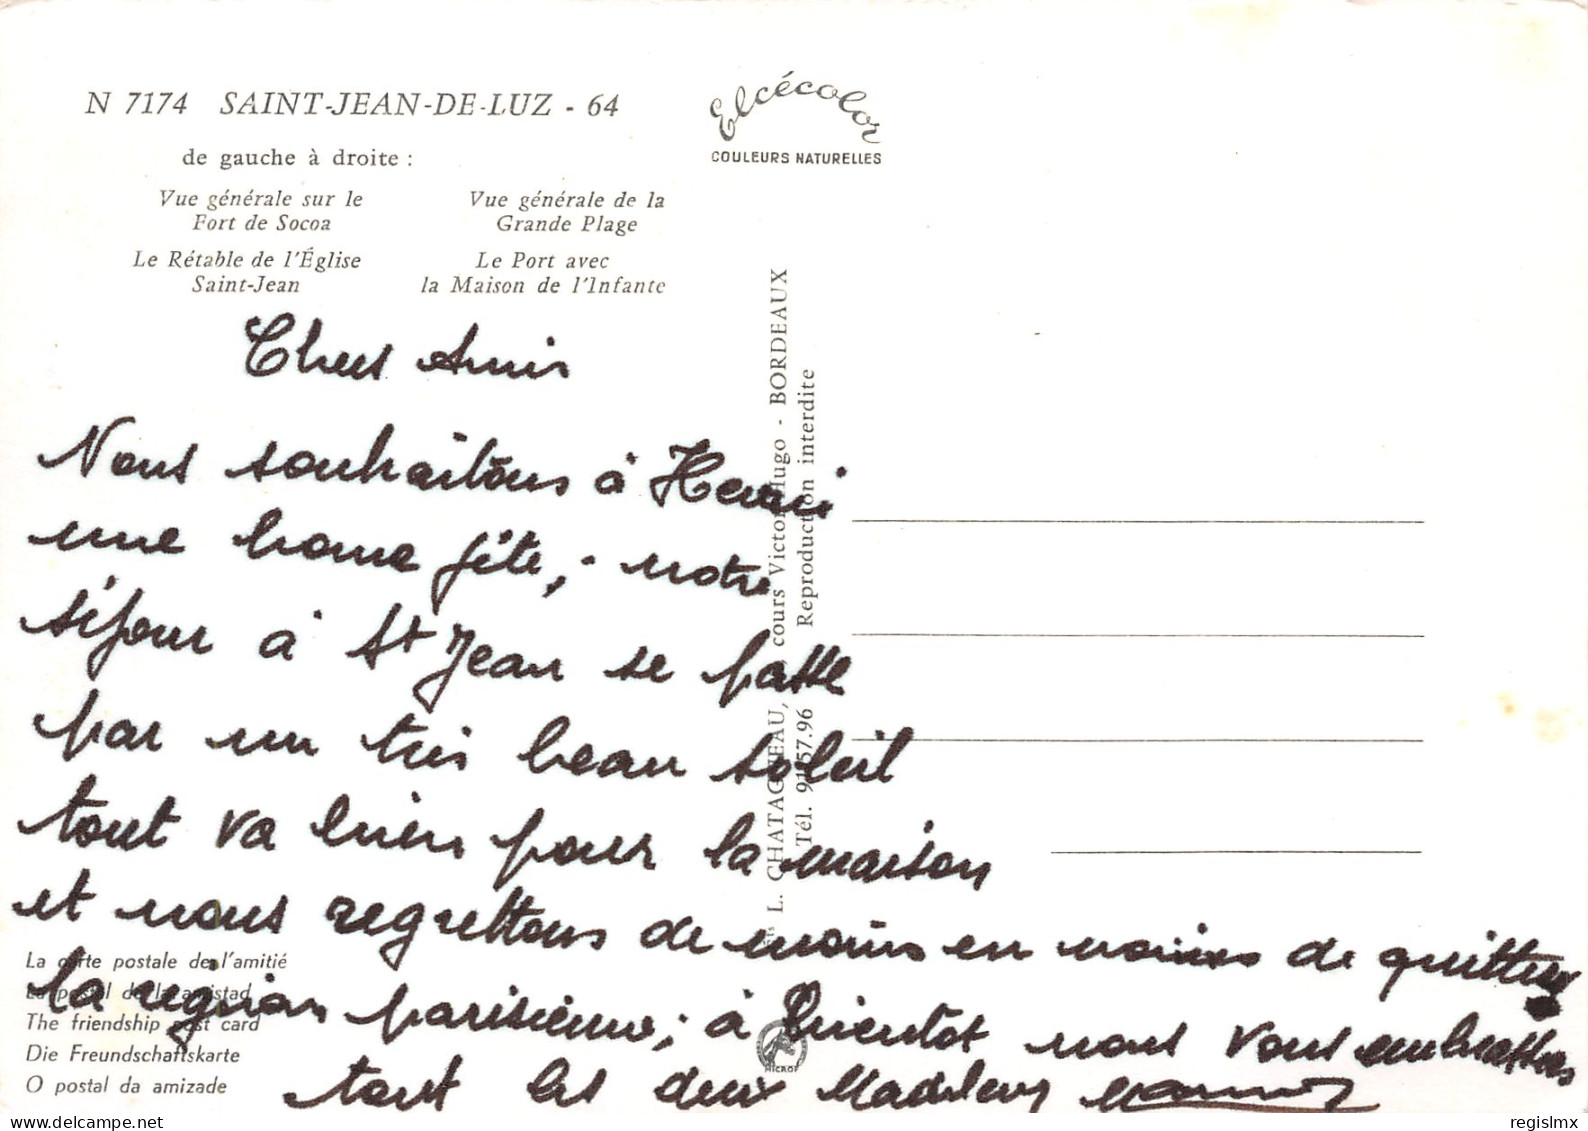 N 7174 SAINT-JEAN-DE-LUZ - 64
de gauche à droite :
Vue générale sur le
Fort de Socoa
Vue générale de la
Grande Plage
Le Rétable de l'Église
Saint-Jean
Le Port avec
la Maison de l'Infante
Elcécolor
COULEURS NATURELLES
Ets L. CHATAGNEAU, cours Victor Hugo - BORDEAUX
Tél. 91.57.96 Reproduction interdite
Chers Amis
Nous souhaitons à Henri
une bonne fête, notre
séjour à St Jean se passe
par un très beau soleil
tout va bien pour la maison
et nous regrettons de moins en moins de quitter
la région parisienne ; à Bientôt nous vous embrassons
tout les deux Madeleine
La carte postale de l'amitié
La postal de la amistad
The friendship post card
Die Freundschaftskarte
O postal da amizade
regislmx